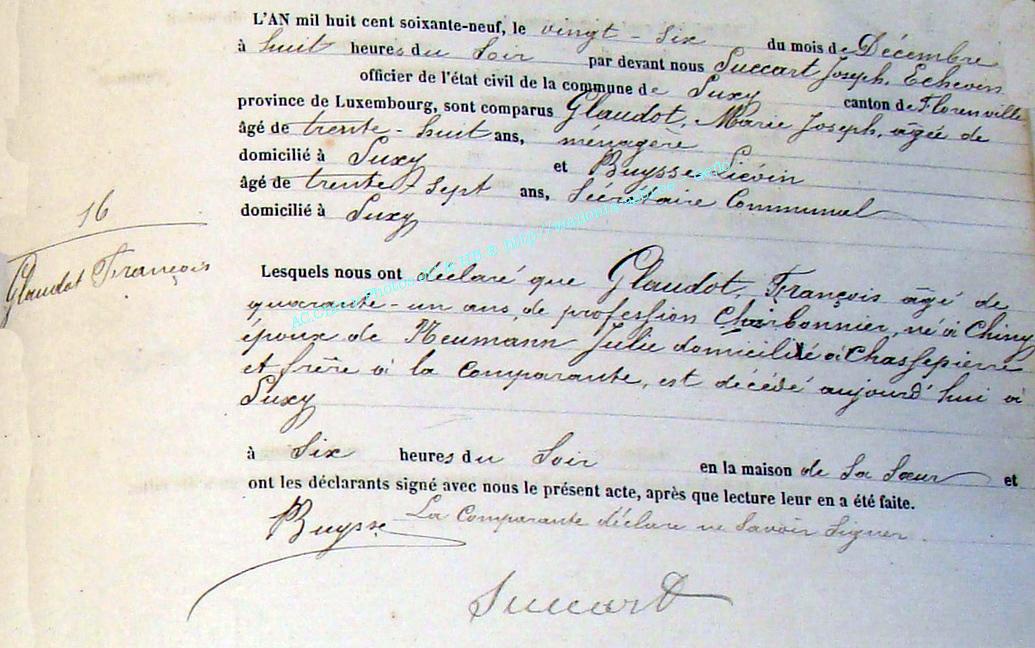 L'AN mil huit cent soixante-neuf, le vingt-six du mois de Décembre
à huit heures du Soir par devant nous Succart Joseph, Echevin
officier de l'état civil de la commune de Suxy canton de Florenville
province de Luxembourg, sont comparus Glaudot, Marie Joseph, âgée de
âgé de trente-huit ans, ménagère
domicilié à Suxy et Buysse Liévin
âgé de trente-sept ans, Sécrétaire Communal
domicilié à Suxy
16
Glaudot François
Lesquels nous ont déclaré que Glaudot, François âgé de
quarante-un ans, de profession Charbonnier, né à Chiny
époux de Neumann Julie domicilié à Chassepierre
et frère à la Comparante, est décédé aujourd'hui à
Suxy
à Six heures du Soir en la maison de Sa Sœur et
ont les déclarants signé avec nous le présent acte, après que lecture leur en a été faite.
La Comparante déclare ne Savoir Signer.
Buysse
Succart